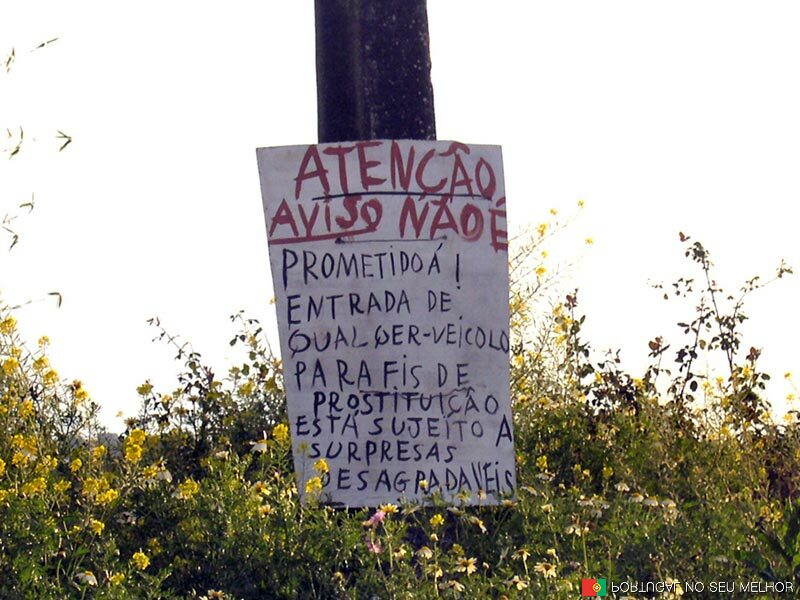 ATENÇÃO,
AVISO NÃO É
PROMETIDO Á !
ENTRADA DE
QUALQER-VEÍCOLO
PARA FIS DE
PROSTITUIÇÃO
ESTÁ SUJEITO A
SURPRESAS
DESAGRADAVEIS
PORTUGAL NO SEU MELHOR